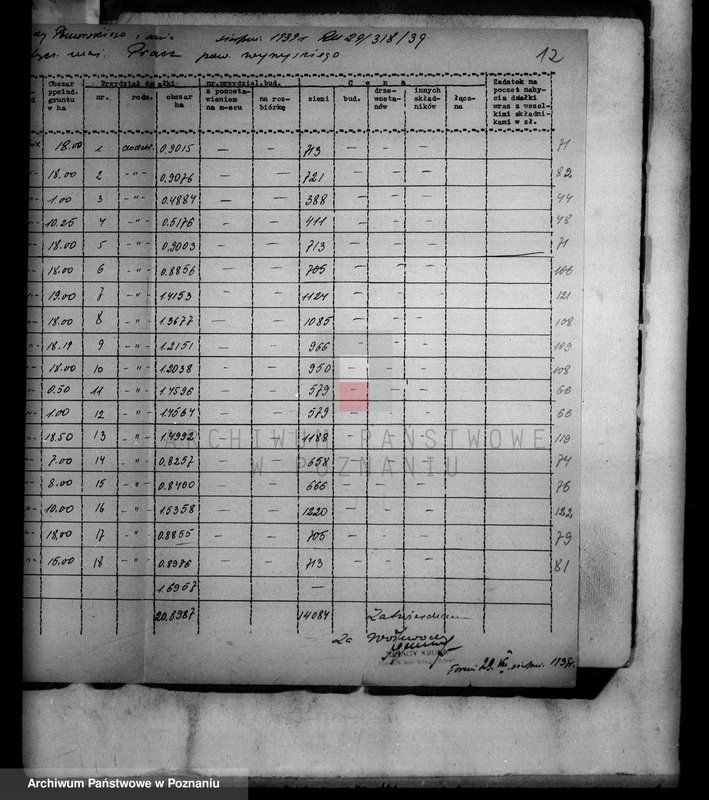 Pomorskiego z dnia sierpn. 1939 r. RU 29/318/39
maj. Pracz pow. wyrzyskiego 12
Obszar pposiad. gruntu w ha | Przydział działki | nr. przydziel. bud. | C e n a | Zadatek na poczet nabycia działki wraz z wszelkimi składnikami w zł.
nr. | rodz. | obszar ha | z pozostawieniem na m-scu | na rozbiórkę | ziemi | bud. | drzewostanów | innych składników | łączna
18.00 1 dodatk. 0.9015 — — 713 — — — 71
18.00 2 -"- 0.9076 — — 721 — — — 82
1.00 3 -"- 0.4884 — — 388 — — — 44
10.25 4 -"- 0.5176 — — 411 — — — 48
18.00 5 -"- 0.9003 — — 713 — — — 71
18.00 6 -"- 0.8856 — — 705 — — — 106
19.00 7 -"- 1.4153 — — 1124 — — — 121
18.00 8 -"- 1.3677 — — 1085 — — — 108
18.19 9 -"- 1.2151 — — 966 — — — 109
18.00 10 -"- 1.2038 — — 950 — — — 108
0.50 11 -"- 1.4596 — — 579 — — — 66
1.00 12 -"- 1.4564 — — 579 — — — 66
18.50 13 -"- 1.4992 — — 1188 — — — 119
7.00 14 -"- 0.8257 — — 658 — — — 74
8.00 15 -"- 0.8400 — — 666 — — — 76
10.00 16 -"- 1.5358 — — 1220 — — — 122
18.00 17 -"- 0.8855 — — 705 — — — 79
15.00 18 -"- 0.8976 — — 713 — — — 81
1.6957 —
20.8987 14084 Zatwierdzam
Za Wojewodę
Toruń 29. sierpn. 1939 r.
ARCHIWUM PAŃSTWOWE
W POZNANIU
Archiwum Państwowe w Poznaniu